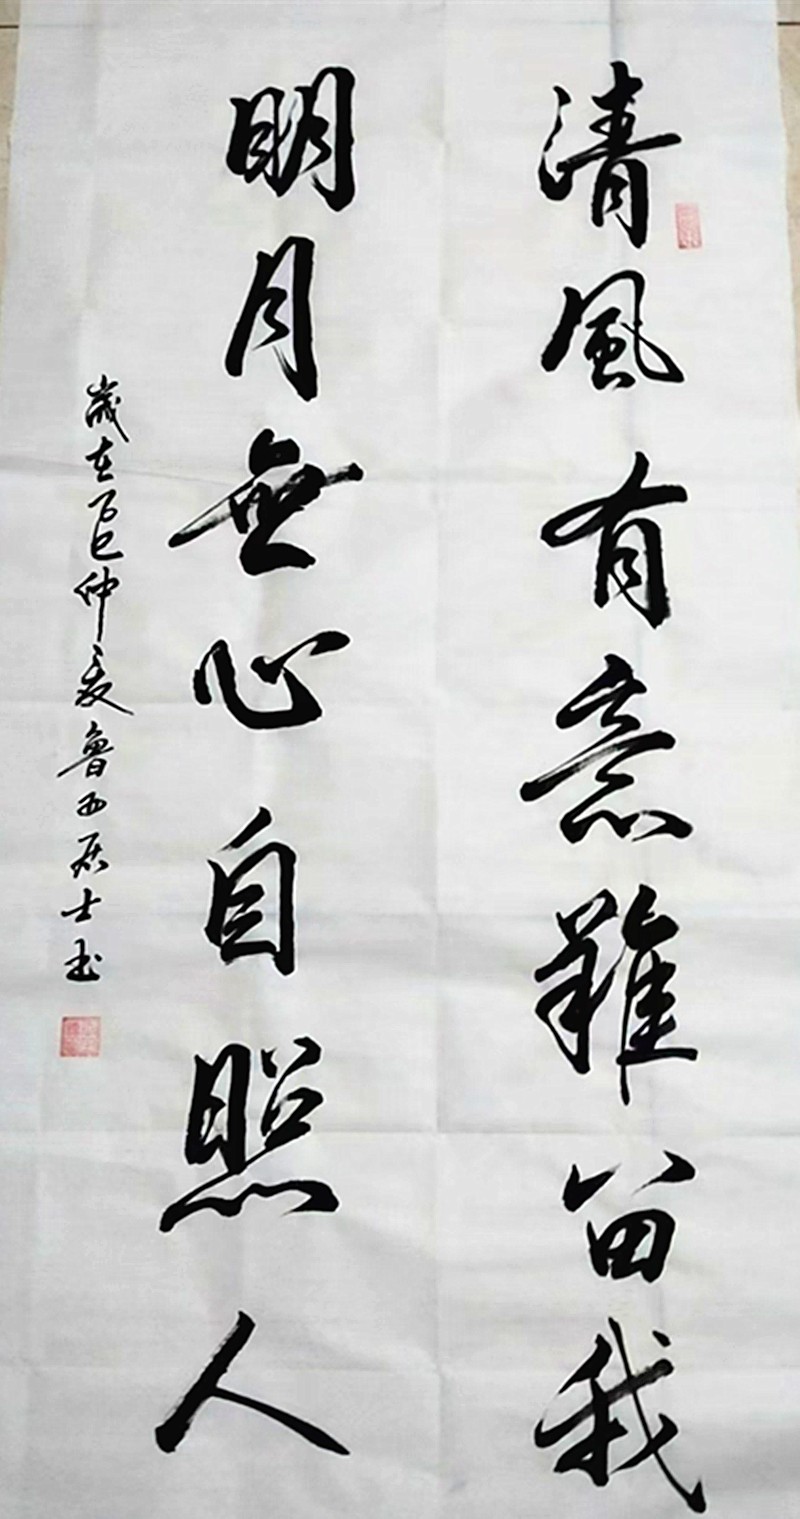 清風有意難留我
明月無心自照人
歲在乙巳仲夏魯西居士书